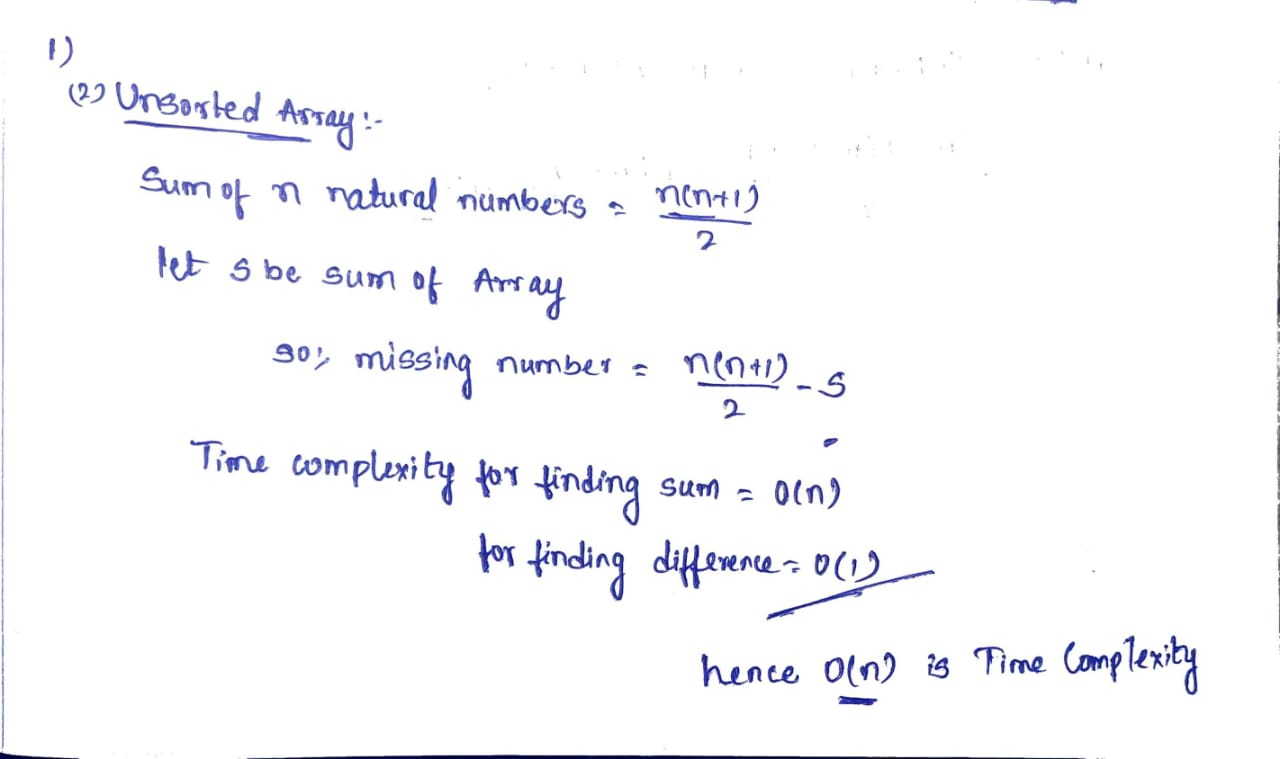 1)
(2) Unsorted Array:-
Sum of n natural numbers = n(n+1)/2
let s be sum of Array
so, missing number = n(n+1)/2 - s
Time complexity for finding sum = O(n)
for finding difference = O(1)
hence O(n) is Time Complexity